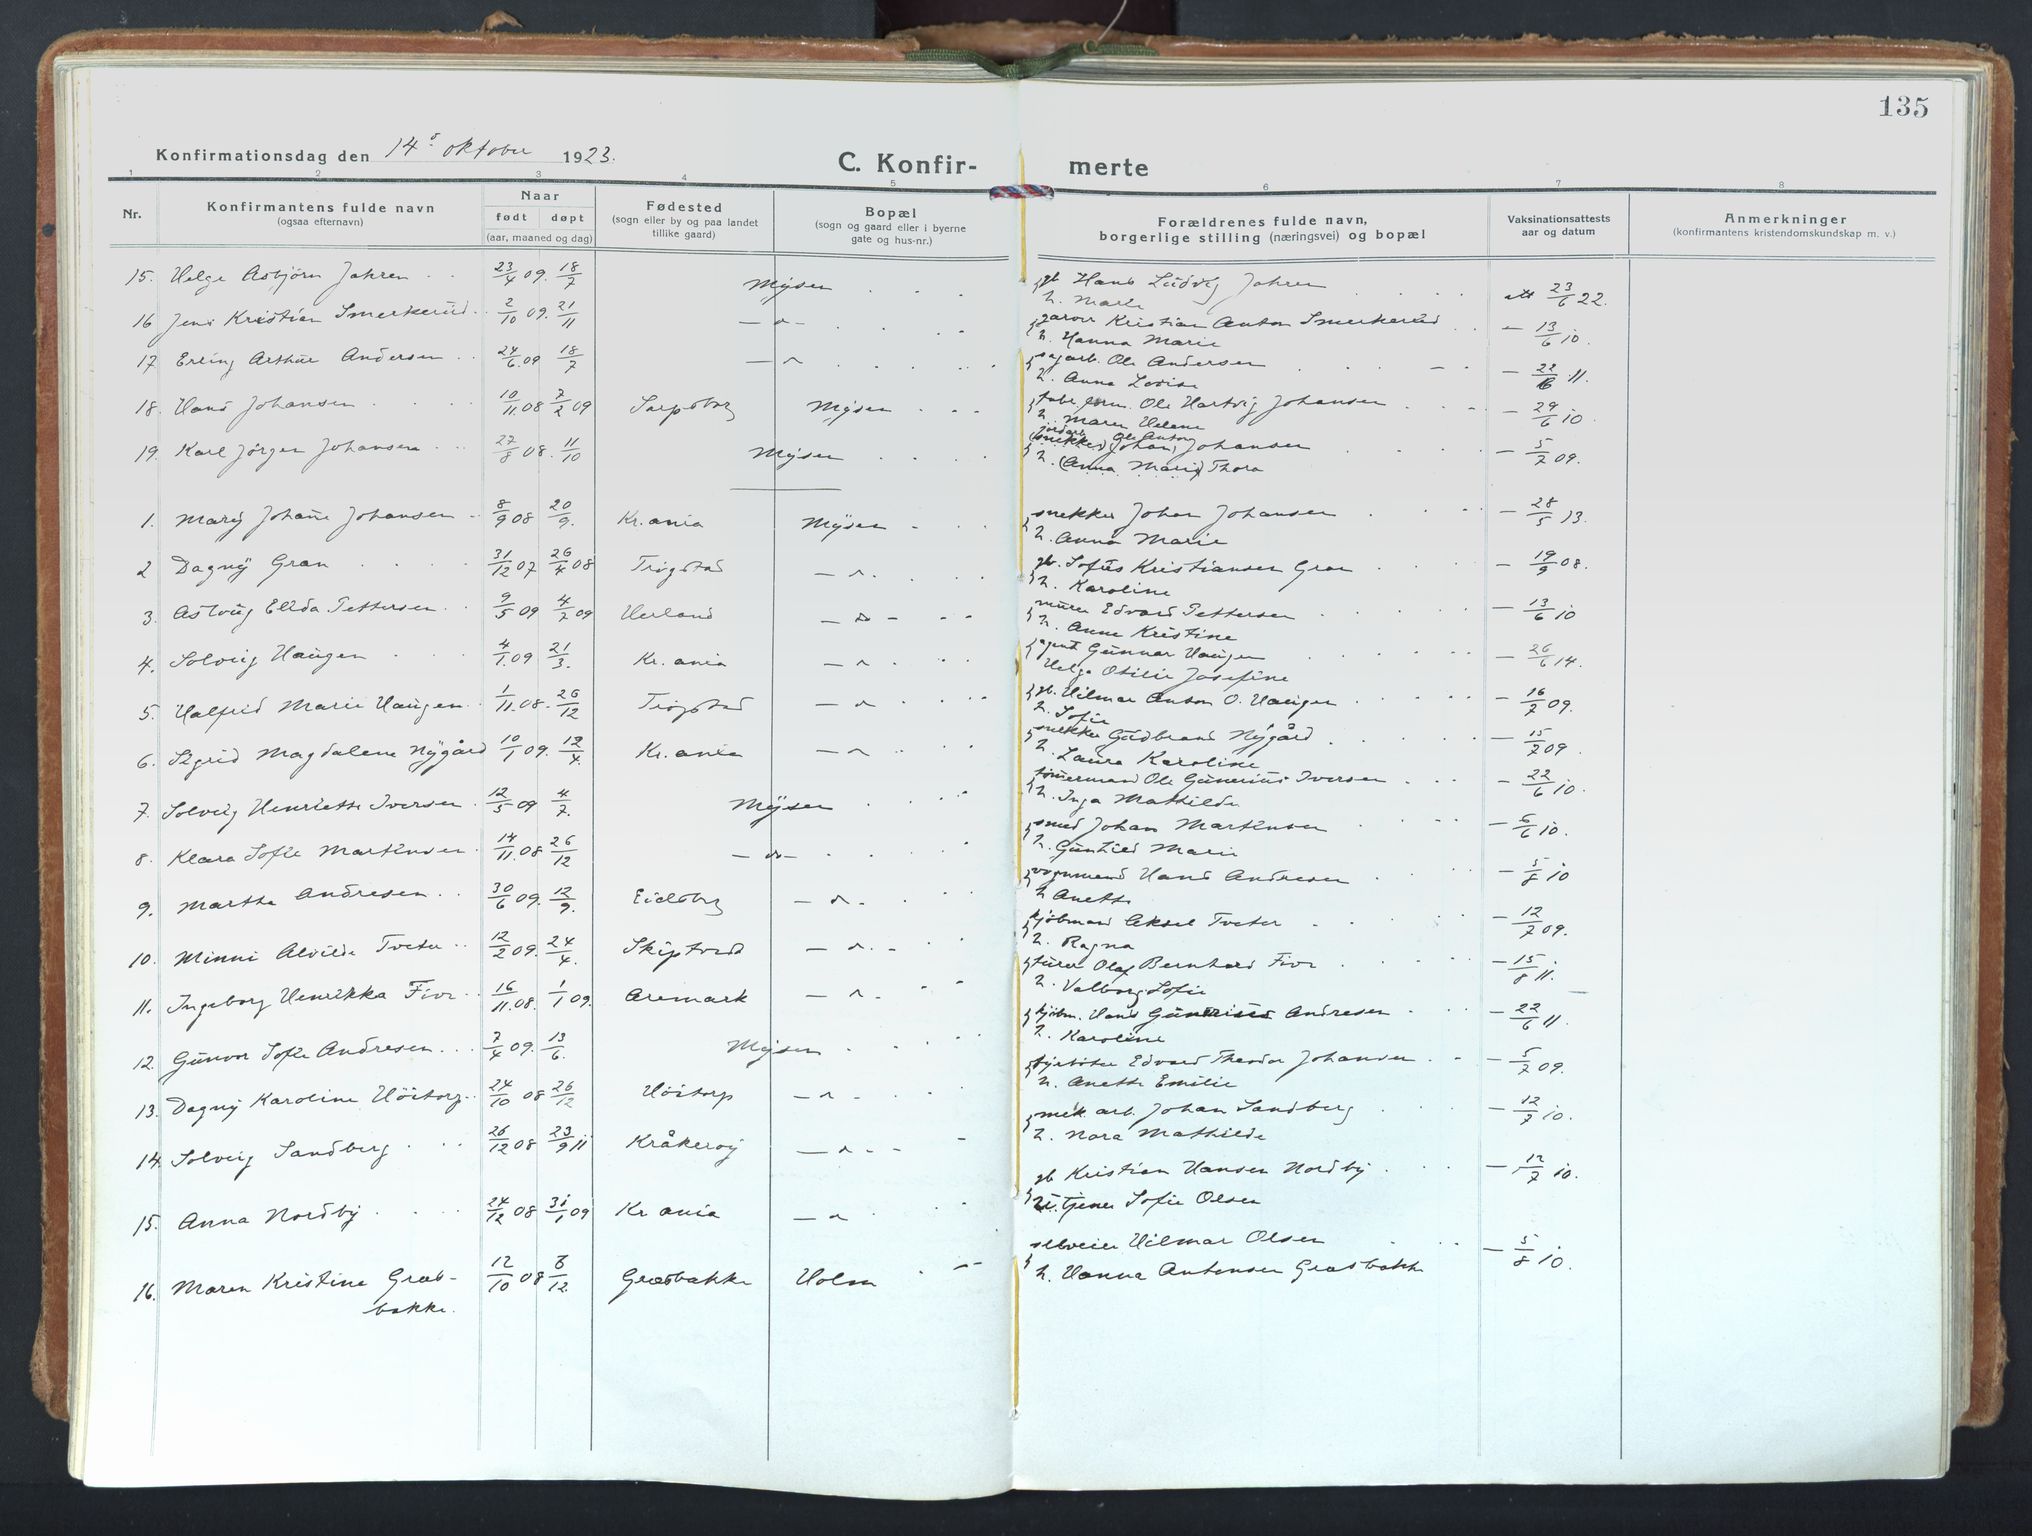 135
Konfirmationsdag den 14de oktober 1923.
C. Konfir- merte
1 2 3 4 5 6 7 8
Nr.
Konfirmantens fulde navn
(ogsaa efternavn)
Naar
født døpt
(aar, maaned og dag)
Fødested
(sogn eller by og paa landet
tillike gaard)
Bopæl
(sogn og gaard eller i byerne
gate og hus-nr.)
Forældrenes fulde navn,
borgerlige stilling (næringsvei) og bopæl
Vaksinationsattests
aar og datum
Anmerkninger
(konfirmantens kristendomskundskap m. v.)
15. Helge Asbjørn Jahren 23/4 09. 18/7 Mysen gb Hans Ludvig Jahren att 23/6 22.
h. Marte
16 Jens Kristian Smerkerud 2/10 09. 21/11 — " — Kristian Anton Smerkerud — 13/6 10.
h. Hanna Marie
17 Erling Arthur Andersen 24/6 09 18/7 — " sagarb. Ole Andersen — 22/6 11.
h. Anna Lovise
18. Hans Johansen 10/11 08 7/2 09 Sarpsborg Mysen Ole Hartvig Johansen — 29/6 10
h. Maren Helene
19. Karl Jørgen Johansen 27/8 08. 11/10 Mysen jordarb. Ole Anton (snekker Johan) Johansen — 5/7 09.
h. (Anna Marie) Thora
1. Mary Johane Johansen 8/9 08 20/9. Kr.ania Mysen snekker Johan Johansen — 28/5 13.
h. Anna Marie
2 Dagny Gran 31/12 07 26/4 08 Trøgstad — " gb. Sofus Kristiansen Gran — 19/9 08.
h. Karoline
3. Aslaug Ellda Pettersen 9/5 09 4/7 09 Herland — " — murer Edvard Pettersen — 13/6 10
h. Anne Kristine
4. Solveig Haugen 4/1 09 21/3. Kr.ania — " agent Gunnar Haugen — 26/6 14.
Helga Otilie Josefine
5. Halfrid Marie Haugen 1/11 08. 26/12 Trøgstad — " gb. Hilmar Anton O. Haugen — 16/7 09.
h. Sofie
6. Sigrid Magdalene Nygård 10/1 09. 12/4. Kr.ania — " snekker Gudbrand Nygård — 15/7 09
h. Laura Karoline
7. Solveig Henriette Iversen 12/5 09 4/7. Mysen tømmermand Ole Gunerius Iversen — 22/6 10.
h. Inga Mathilde
8. Klara Sofie Martinsen 14/11 08 26/12 — " — smed Johan Martinsen — 6/6 10.
h. Gunhild Marie
9. Marthe Andresen 30/6 09. 12/9. Eidsberg — " vognmand Hans Andresen — 5/8 10
h. Anette
10. Minni Alvilde Tveter 12/2 09. 24/4. Skiptvedt — " kjøbmand Aksel Tveter — 12/7 09.
h. Ragna
11. Ingeborg Henrikka Fivr 16/11 08. 1/1 09. Aremark — " Olaf Bernhard Fivr — 15/8 11.
h. Valborg Sofie
12. Gunvor Sofie Andresen 7/4 09. 13/6. Mysen kjøbm. Hans Gunerius Andresen — 22/6 11.
h. Karoline
13. Dagny Karoline Høitorp 24/10 08 26/12 Høitorp — " fyrbøter Edvard Theodor Johansen — 5/7 09.
h. Anette Emilie
14. Solveig Sandberg 26/12 08 23/9 11 Kråkerøy — " mek. arb. Johan Sandberg — 12/7 10.
h. Nora Mathilde
15. Anna Nordby 24/12 08 31/1 09 Kr.ania — " gb Kristian Hansen Nordby — 12/7 10.
tjener Sofie Olsen
16. Maren Kristine Græs- 12/10 08 6/12 Græsbakke Holm selveier Hilmar Olsen — 5/8 10.
bakke. h. Hanna Antonsen Græsbakke